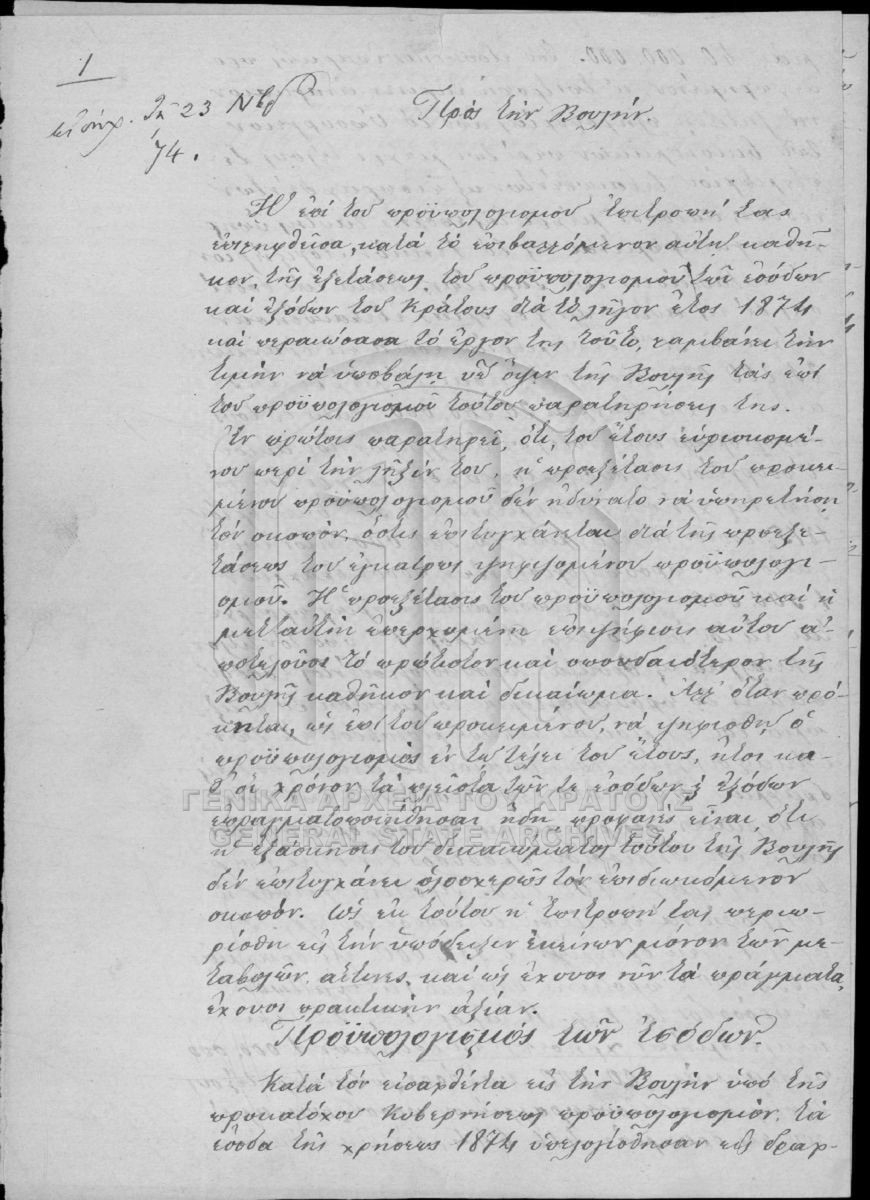 1
εἰσήχ. τῇ 23 Νβρ
74.
Πρὸς τὴν Βουλήν.
Ἡ ἐπὶ τοῦ προϋπολογισμοῦ Ἐπιτροπή σας
ἐπιληφθεῖσα, κατὰ τὸ ἐπιβαλλόμενον αὐτῇ καθῆ-
κον, τῆς ἐξετάσεως τοῦ προϋπολογισμοῦ τῶν ἐσόδων
καὶ ἐξόδων τοῦ Κράτους διὰ τὸ λῆγον ἔτος 1874
καὶ περαιώσασα τὸ ἔργον της τοῦτο, λαμβάνει τὴν
τιμὴν νὰ ὑποβάλῃ ὑπ' ὄψιν τῆς Βουλῆς τὰς ἐπὶ
τοῦ προϋπολογισμοῦ τούτου παρατηρήσεις της.
Ἐν πρώτοις παρατηρεῖ, ὅτι, τοῦ ἔτους εὑρισκομέ-
νου περὶ τὴν λῆξίν του, ἡ προεξέτασις τοῦ προκει-
μένου προϋπολογισμοῦ δὲν ἠδύνατο νὰ ὑπηρετήσῃ
τὸν σκοπὸν, ὅστις ἐπιτυγχάνεται διὰ τῆς προεξε-
τάσεως τοῦ ἐγκαίρως ψηφιζομένου προϋπολογι-
σμοῦ. Ἡ προεξέτασις τοῦ προϋπολογισμοῦ καὶ ἡ
μετ' αὐτὴν ἐπερχομένη ἐπιψήφισις αὐτοῦ ἀ-
ποτελοῦσι τὸ πρώτιστον καὶ σπουδαιότερον τῆς
Βουλῆς καθῆκον καὶ δικαίωμα. Ἀλλ' ὅταν πρό-
κηται, ὡς ἐπὶ τοῦ προκειμένου, νὰ ψηφισθῇ ὁ
προϋπολογισμὸς ἐν τῷ τέλει τοῦ ἔτους, ἤτοι κα-
θ' ὃν χρόνον τὰ πλεῖστα τῶν τε ἐσόδων ϗ ἐξόδων
ἐπραγματοποιήθησαν ἤδη προφανὲς εἶναι ὅτι
ἡ ἐξάσκησις τοῦ δικαιώματος τούτου τῆς Βουλῆς
δὲν ἐπιτυγχάνει ὁλοσχερῶς τὸν ἐπιδιωκόμενον
σκοπόν. Ὡς ἐκ τούτου ἡ Ἐπιτροπή σας περιω-
ρίσθη εἰς τὴν ὑπόδειξιν ἐκείνων μόνον τῶν με-
ταβολῶν, αἵτινες, καὶ ὡς ἔχουσι νῦν τὰ πράγματα,
ἔχουσι πρακτικὴν ἀξίαν.
Προϋπολογισμὸς τῶν Ἐσόδων.
Κατὰ τὸν εἰσαχθέντα εἰς τὴν Βουλὴν ὑπὸ τῆς
προκατόχου Κυβερνήσεως προϋπολογισμὸν, τὰ
ἔσοδα τῆς χρήσεως 1874 ὑπελογίσθησαν εἰς δραχ-
ΓΕΝΙΚΑ ΑΡΧΕΙΑ ΤΟΥ ΚΡΑΤΟΥΣ
GENERAL STATE ARCHIVES